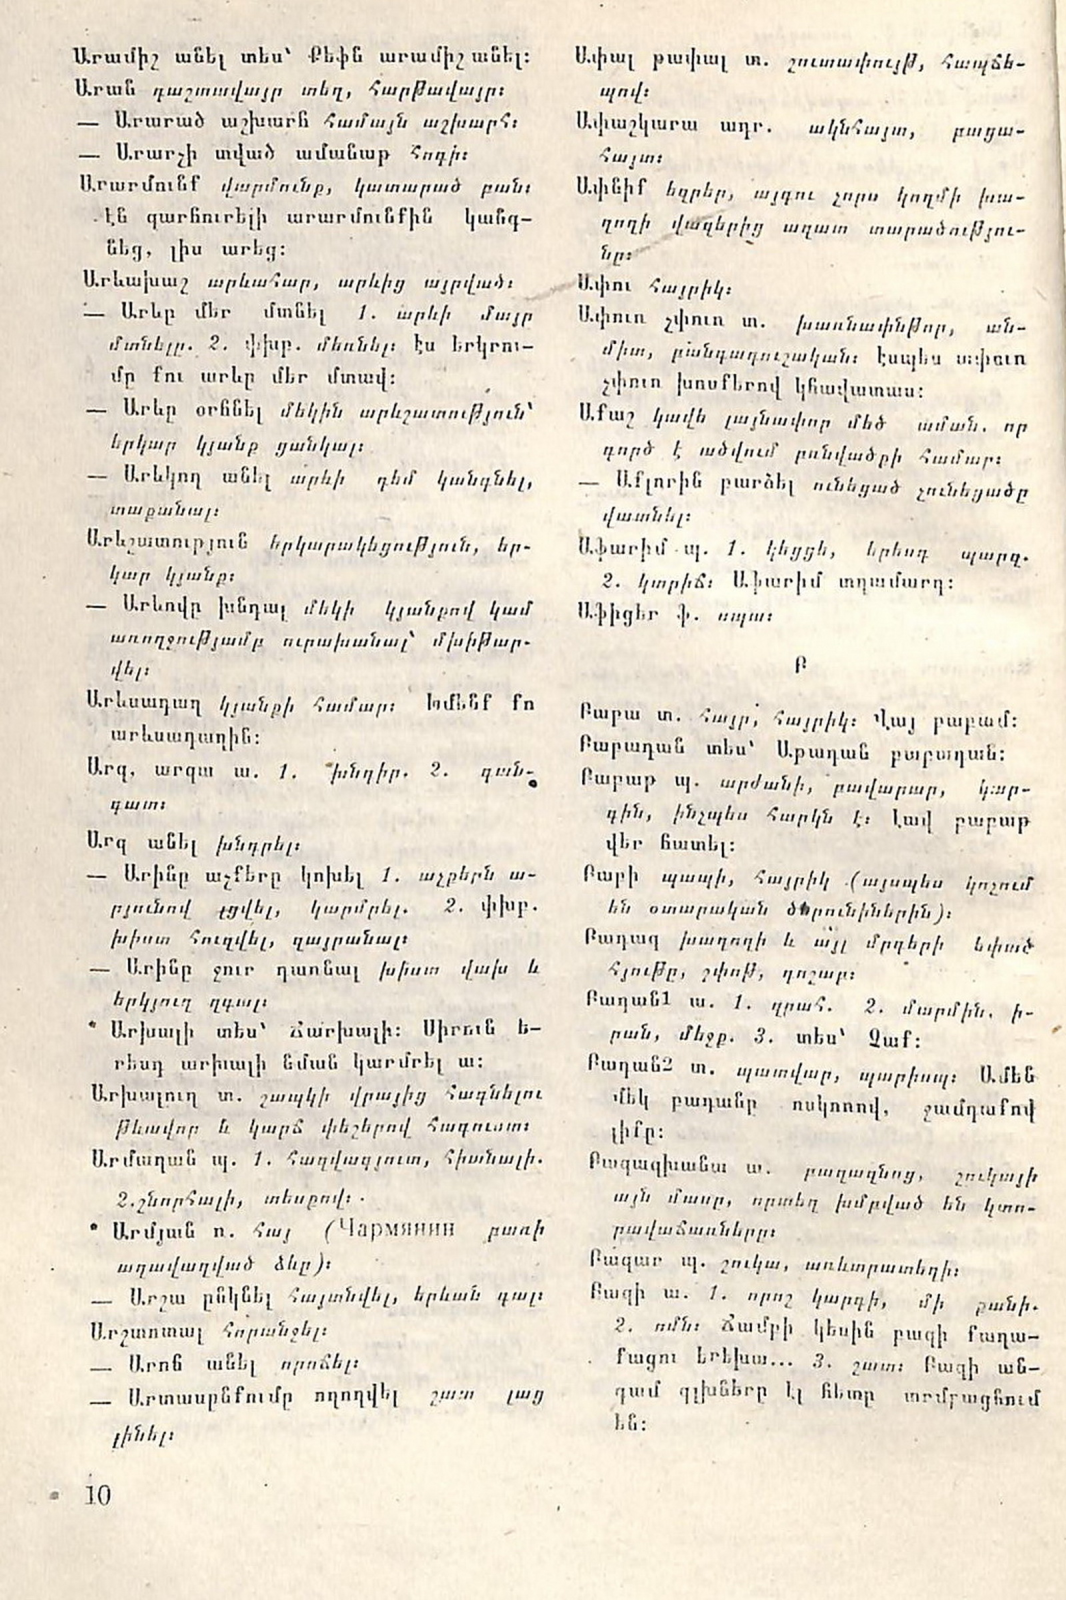 Արամիշ անել տես՝ Քեֆն արամիշ անել։
Արան դաշտավայր տեղ, հարթավայր։
— Արարած աշխարհ համայն աշխարհ։
— Արարչի տված ամանաթ հոգի։
Արարմունք վարմունք, կատարած բան։
էն զարհուրելի արարմունքին կանգ-
նեց, լիս արեց։
Արևախաշ արևահար, արևից այրված։
— Արևը մեր մտնել 1. արևի մայր
մտնելը. 2. փխբ. մեռնել։ էս երկրու-
մը քու արևը մեր մտավ։
— Արևը օրհնել մեկին արևշատություն՝
երկար կյանք ցանկալ։
— Արևկող անել արևի դեմ կանգնել,
տաքանալ։
Արևշատություն երկարակեցություն, եր-
կար կյանք։
— Արևովը խնդալ մեկի կյանքով կամ
առողջությամբ ուրախանալ՝ մխիթար-
վել։
Արևսադաղ կյանքի համար։ Խմենք քո
արևսադաղին։
Արզ, արզա ա. 1. խնդիր. 2. գան-
գատ։
Արզ անել խնդրել։
— Արինը աչքերը կոխել 1. աչքերն ա-
րյունով լցվել, կարմրել. 2. փխբ.
խիստ հուզվել, զայրանալ։
— Արինը ջուր դառնալ խիստ վախ և
երկյուղ զգալ։
* Արխալի տես՝ Ճարխալի։ Սիրուն ե-
րեսդ արխալի նման կարմրել ա։
Արխալուղ տ. շապկի վրայից հագնելու
թևավոր և կարճ փեշերով հագուստ։
Արմաղան պ. 1. հազվագյուտ, հիանալի.
2. շնորհալի, տեսքով։
* Արմյան ռ. հայ (Чармянин բառի
աղավաղված ձևը)։
— Արշա ընկնել հայտնվել, երևան գալ։
Արշառտալ հորանջել։
— Արոճ անել որոճել։
— Արտասընքումը ողողվել շատ լաց
լինել։
10
Ափալ թափալ տ. շուտափույթ, հապճե-
պով։
Ափաշկարա ադր. ակնհայտ, բացա-
հայտ։
Ափնիք եզրեր, այգու չորս կողմի խա-
ղողի վազերից ազատ տարածություն-
նը։
Ափու հայրիկ։
Ափուռ չփուռ տ. խառնափնթոր, ան-
միտ, բանդագուշական։ էսպես ափուռ
չփուռ խոսքերով կհավատաս։
Աքաշ կավե լայնափոր մեծ աման. որ
գործ է ածվում բռնվածքի համար։
— Աքլորին բարձել ունեցած չունեցածը
վատնել։
Աֆարիմ պ. 1. կեցցե, երեսդ պարզ.
2. կտրիճ։ Աֆարիմ տղամարդ։
Աֆիցեր ֆ. սպա։
Բ
Բաբա տ. հայր, հայրիկ։ Վայ բաբամ։
Բաբադան տես՝ Աբադան բաբադան։
Բաբաթ պ. արժանի, բավարար, կար-
գին, ինչպես հարկն է։ Լավ բաբաթ
վեր հատել։
Բաբի պապի, հայրիկ (այսպես կոչում
են օտարական ծերունիներին)։
Բադազ խաղողի և այլ մրգերի եփած
հյութը, շփոթ, դոշաբ։
Բադան1 ա. 1. զրահ. 2. մարմին, ի-
րան, մեջք. 3. տես՝ Չաֆ։
Բադան2 տ. պատվար, պարիսպ։ Ամեն
մեկ բադանը ոսկոռով, ջամդաքով
լիքը։
Բազազխանա ա. բազազնոց, շուկայի
այն մասը, որտեղ խմբված են կտո-
րավաճառները։
Բազար պ. շուկա, առևտրատեղի։
Բազի ա. 1. որոշ կարգի, մի քանի.
2. ոմն։ Ճամբի կեսին բազի քաղա-
քացու երեխա... 3. շատ։ Բազի ան-
գամ գլխները էլ հետը տրմբացնում
են։